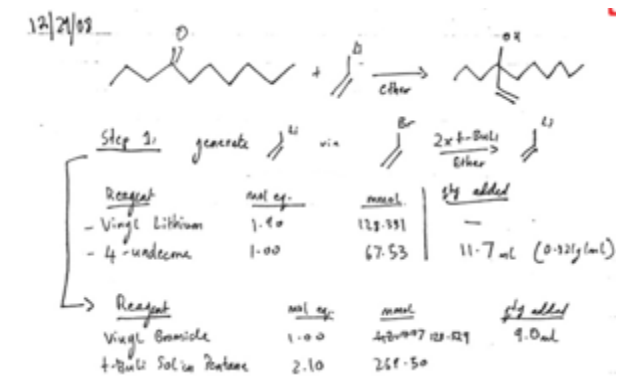 12/29/08
O
Li
OH
+
ether
Step 1: generate Li via Br 2x t-BuLi Li
Ether
Reagent mol eq. mmol qty added
- Vinyl Lithium 1.90 128.331 —
- 4-undecone 1.00 67.53 11.7 mL (0.821g/mL)
Reagent mol eq. mmol qty added
Vinyl Bromide 1.00 128.529 9.0mL
t-BuLi Soln in Pentane 2.10 269.50